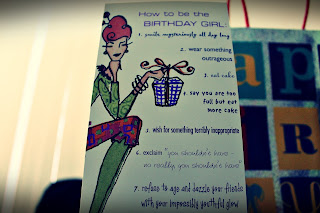 How to be the
BIRTHDAY GIRL:
1. smile mysteriously all day long
2. wear something
outrageous
3. eat cake
4. say you are too
full but eat
more cake
5. wish for something terribly inappropriate
6. exclaim "you shouldn't have -
no really, you shouldn't have"
7. refuse to age and dazzle your friends
with your impossibly youthful glow
a p
R